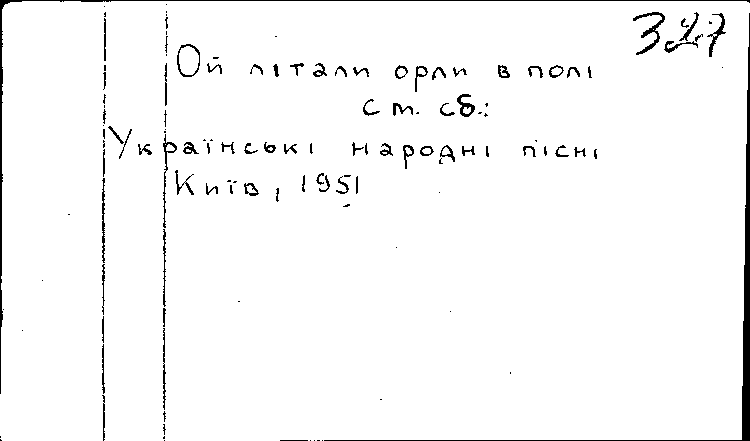 327
Ой літали орли в полі
см. сб.:
Українські народні пісні
Київ, 1951